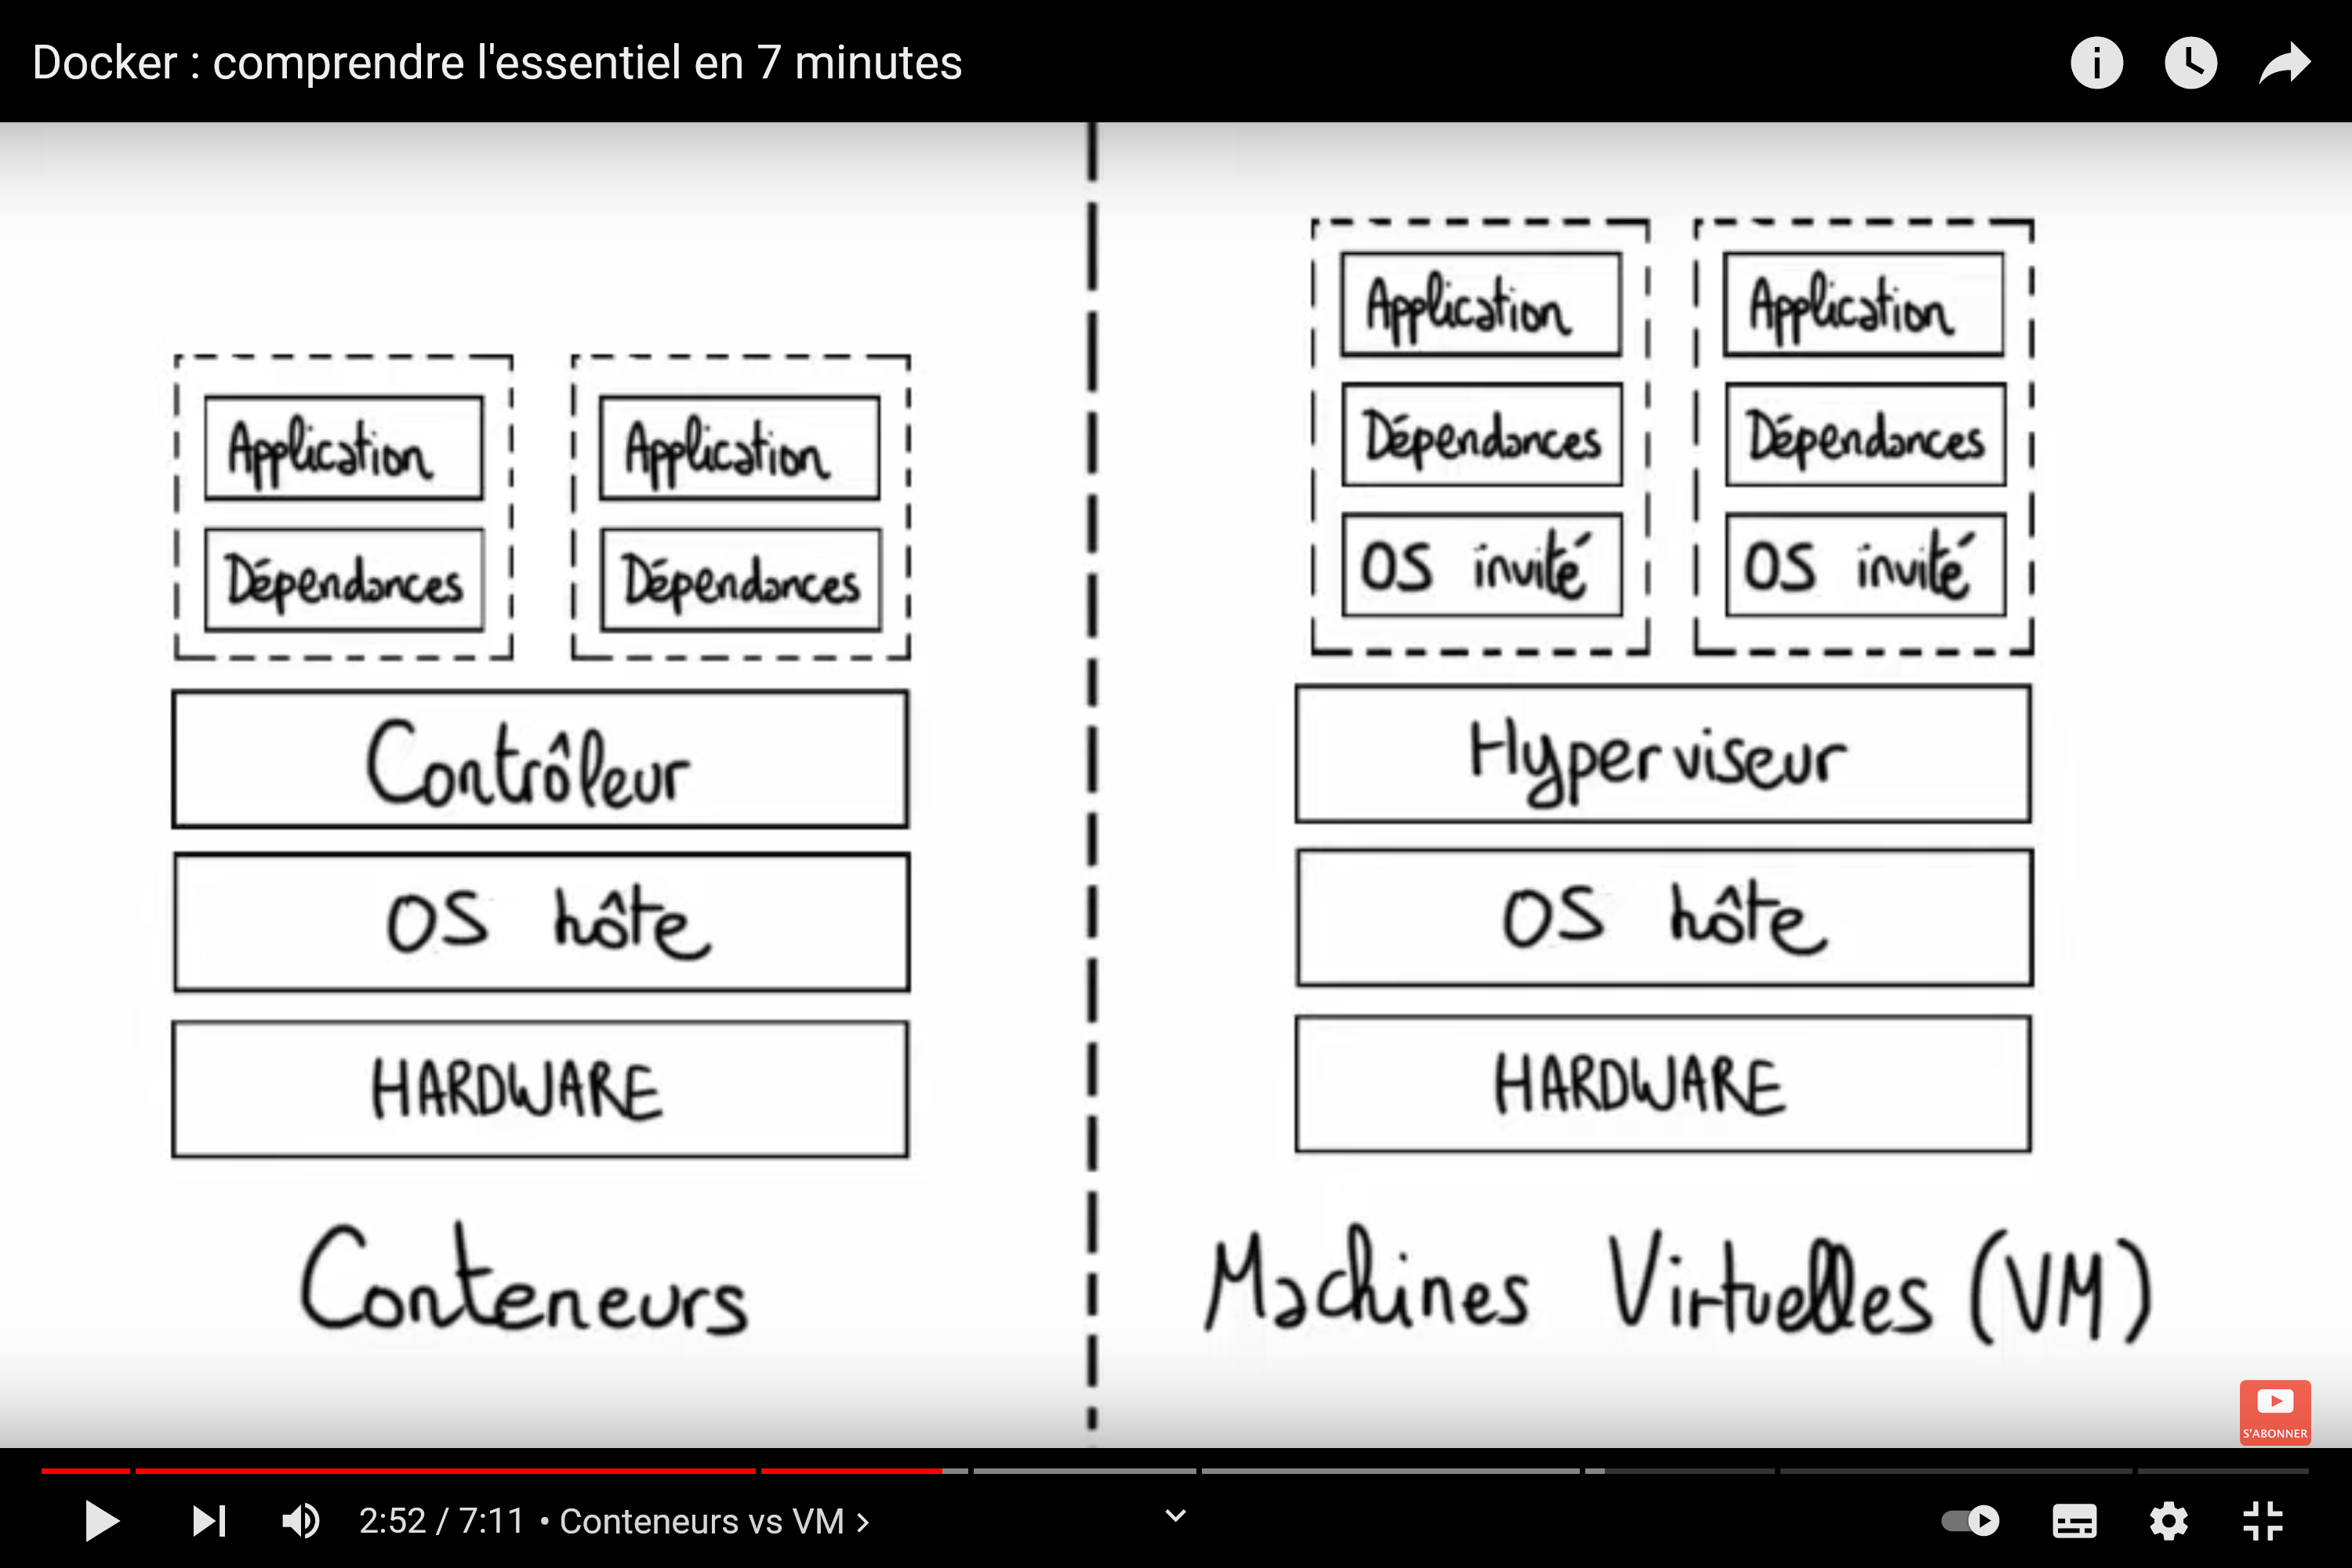 Docker : comprendre l'essentiel en 7 minutes
Application
Application
Dépendances
Dépendances
Contrôleur
OS hôte
HARDWARE
Conteneurs
Application
Application
Dépendances
Dépendances
OS invité
OS invité
Hyperviseur
OS hôte
HARDWARE
Machines Virtuelles (VM)
S'ABONNER
2:52 / 7:11 • Conteneurs vs VM